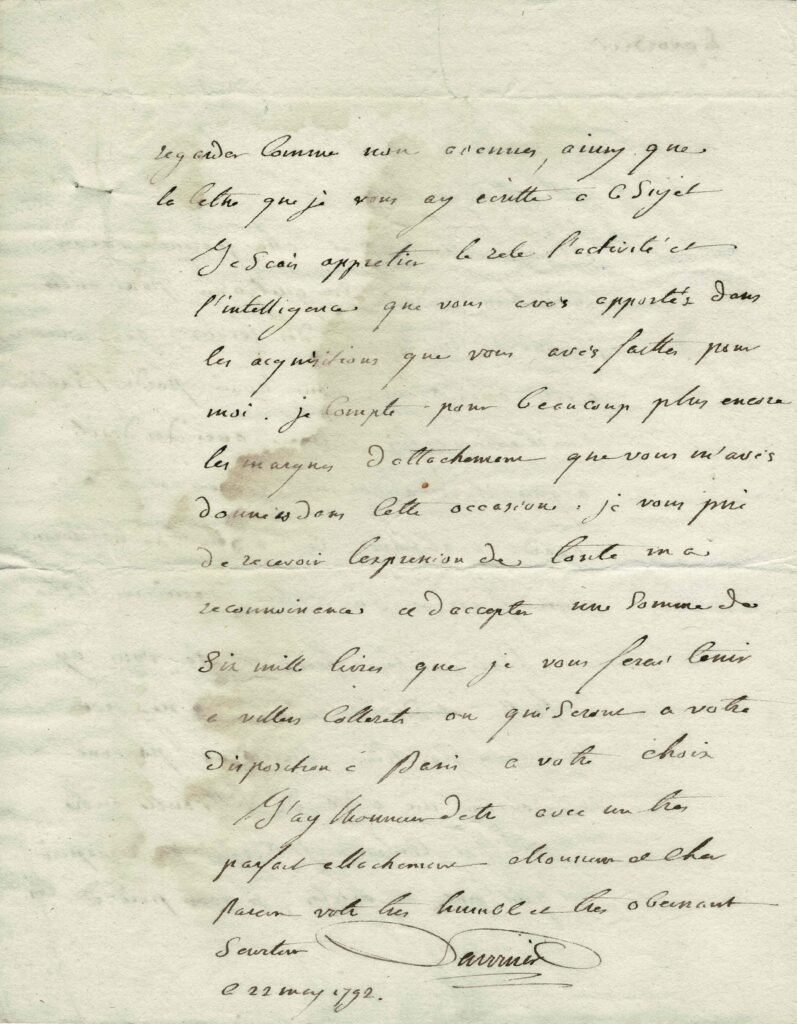 regarder comme non avenues, ainsy que
la lettre que je vous ay écritte a ce Sujet
Je Scais appretier le zele l'activité et
l'intelligence que vous avés apportés dans
les acquisitions que vous avés faittes pour
moi. je compte pour beaucoup plus encore
les marques d'attachement que vous m'avés
données dans cette occasion. je vous prie
de recevoir l'expression de toute ma
reconnoissance et d'accepter une Somme de
Six mille livres que je vous ferai tenir
a villers Cotterets ou qui Seront a votre
disposition à Paris a votre choix
J'ay lhonneur detre avec un tres
parfait attachement Monsieur et cher
Parein votre tres humble et tres obeissant
Serviteur
Ce 22 may 1792.